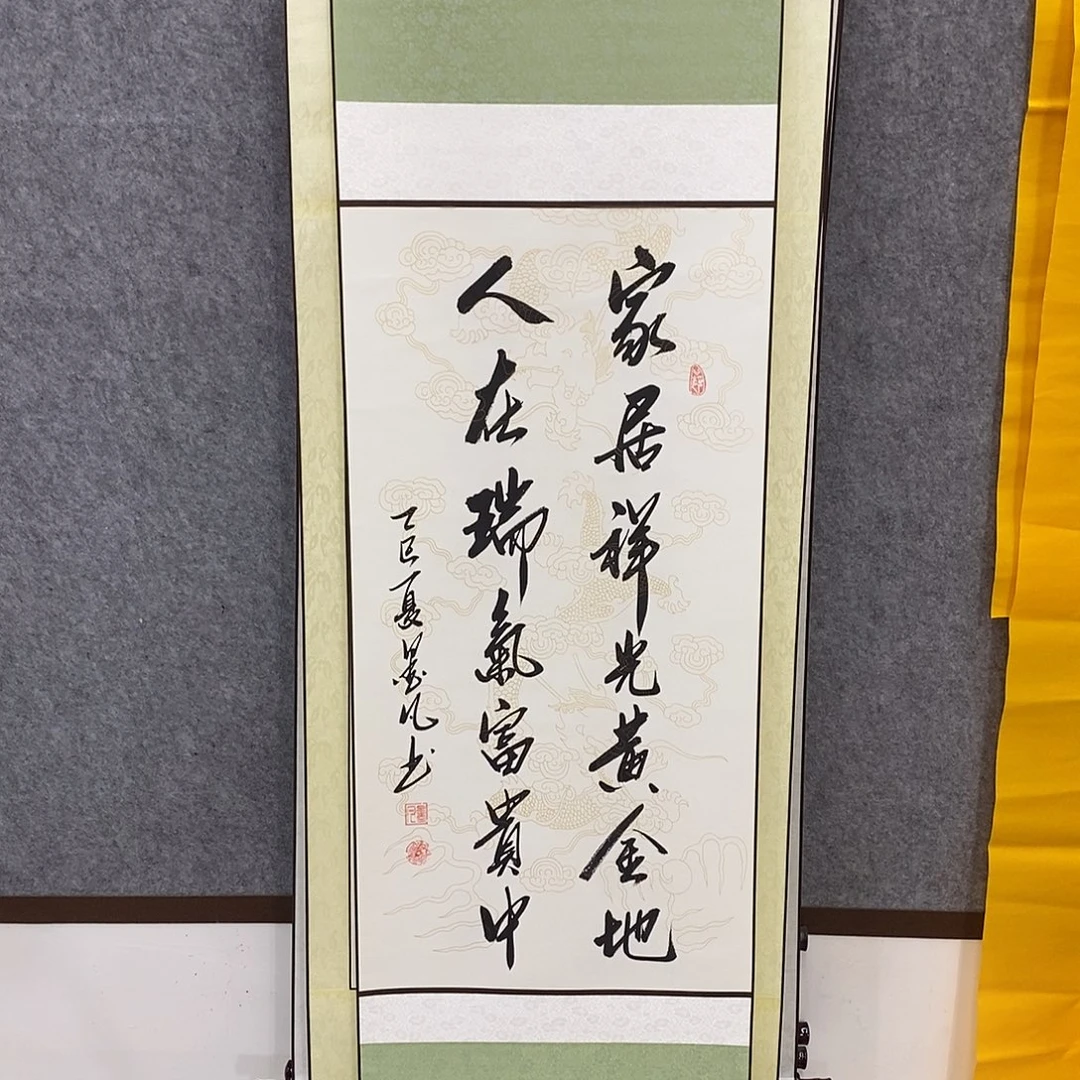 家居祥光黃金地
人在瑞氣富貴中
乙巳夏墨凡书